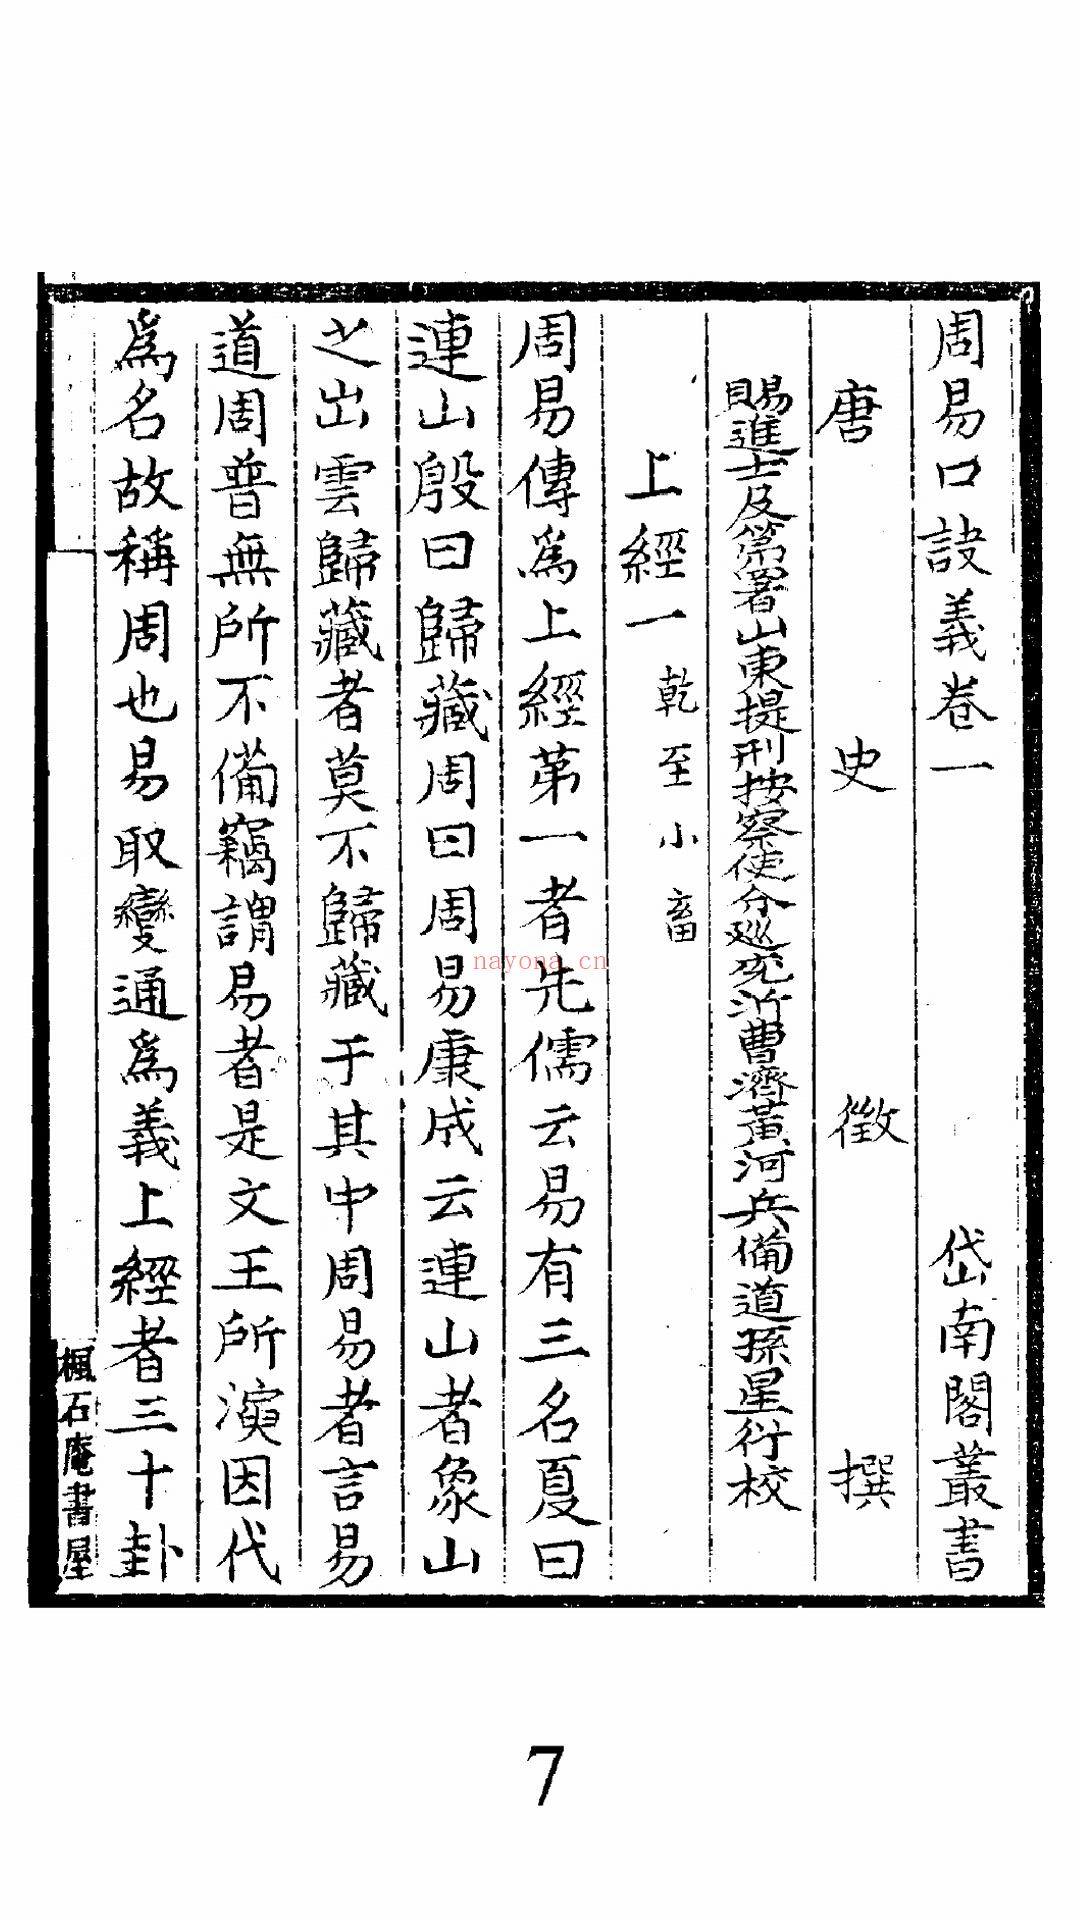 周易口訣義卷一　岱南閣叢書
唐　史　徵　撰
賜進士及第署山東提刑按察使分巡兖沂曹濟黃河兵備道孫星衍校
上經一 乾至小畜
周易傳爲上經第一者先儒云易有三名夏曰
連山殷曰歸藏周曰周易康成云連山者象山
之出雲歸藏者莫不歸藏于其中周易者言易
道周普無所不備竊謂易者是文王所演因代
爲名故稱周也易取變通爲義上經者三十卦
楓石庵書屋
nayona.cn
7